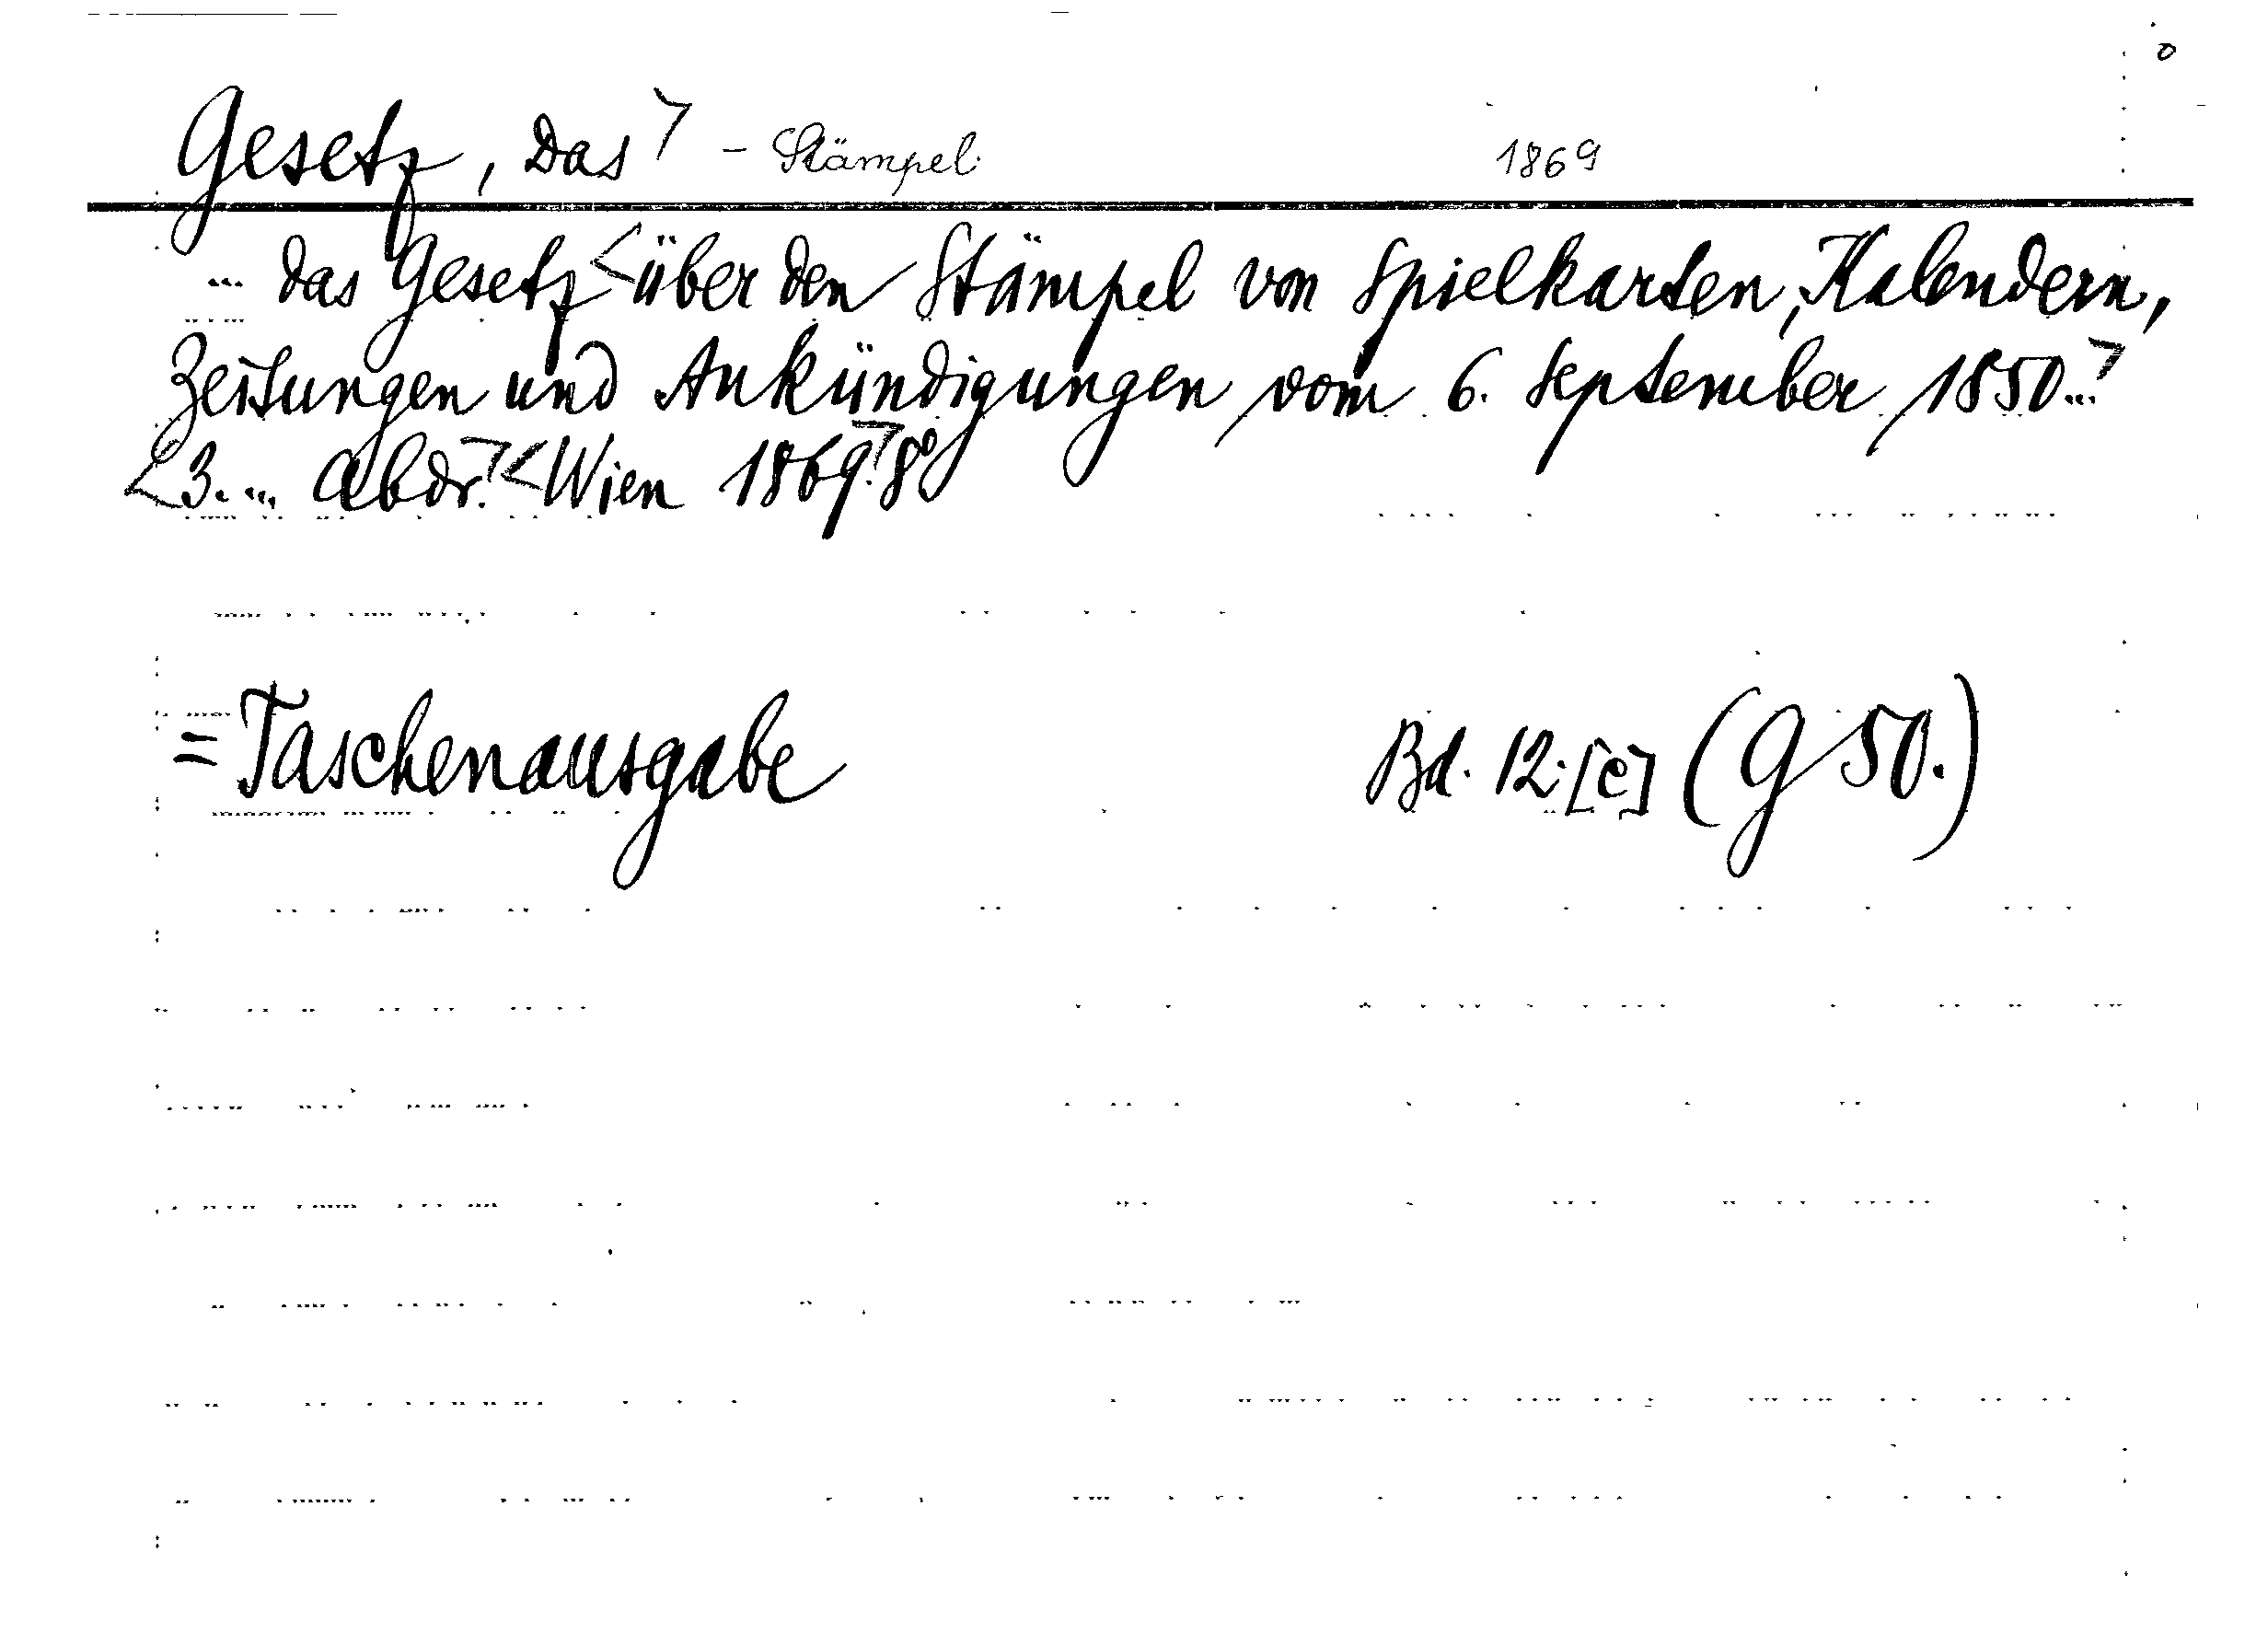 Gesetz, Das - Stämpel. 1869
... das Gesetz über den Stämpel von Spielkarten, Kalendern,
Zeitungen und Ankündigungen vom 6. September 1850...
3. ... Abdr. Wien 1869. 8°
= Taschenausgabe Bd. 12. [c] (G 50.)